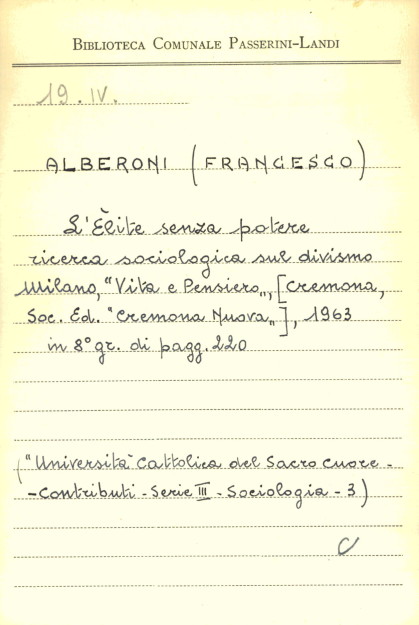 BIBLIOTECA COMUNALE PASSERINI-LANDI
19. IV.
ALBERONI (FRANCESCO)
L'Èlite senza potere
ricerca sociologica sul divismo
Milano, "Vita e Pensiero", [Cremona,
Soc. Ed. "Cremona Nuova"], 1963
in 8° gr. di pagg. 220
("Università Cattolica del Sacro Cuore -
- Contributi - Serie III - Sociologia - 3)
C